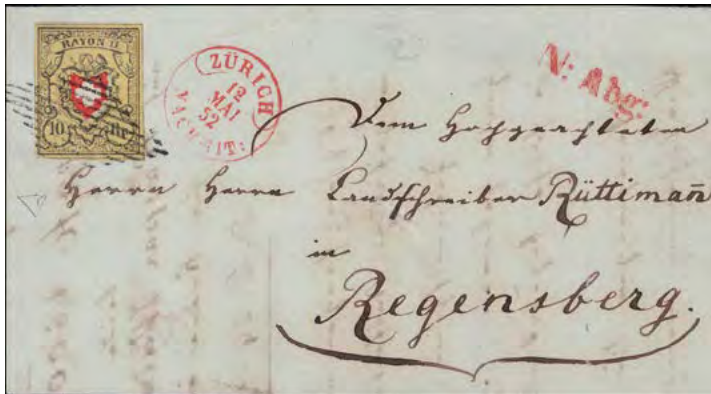 RAYON II
10 Rp.
ZÜRICH
12
MAI
52
NACHMIT:
N: Abg:
Dem Hochgeachteten
Herrn Herrn Landschreiber Rüttimañ
in
Regensberg.